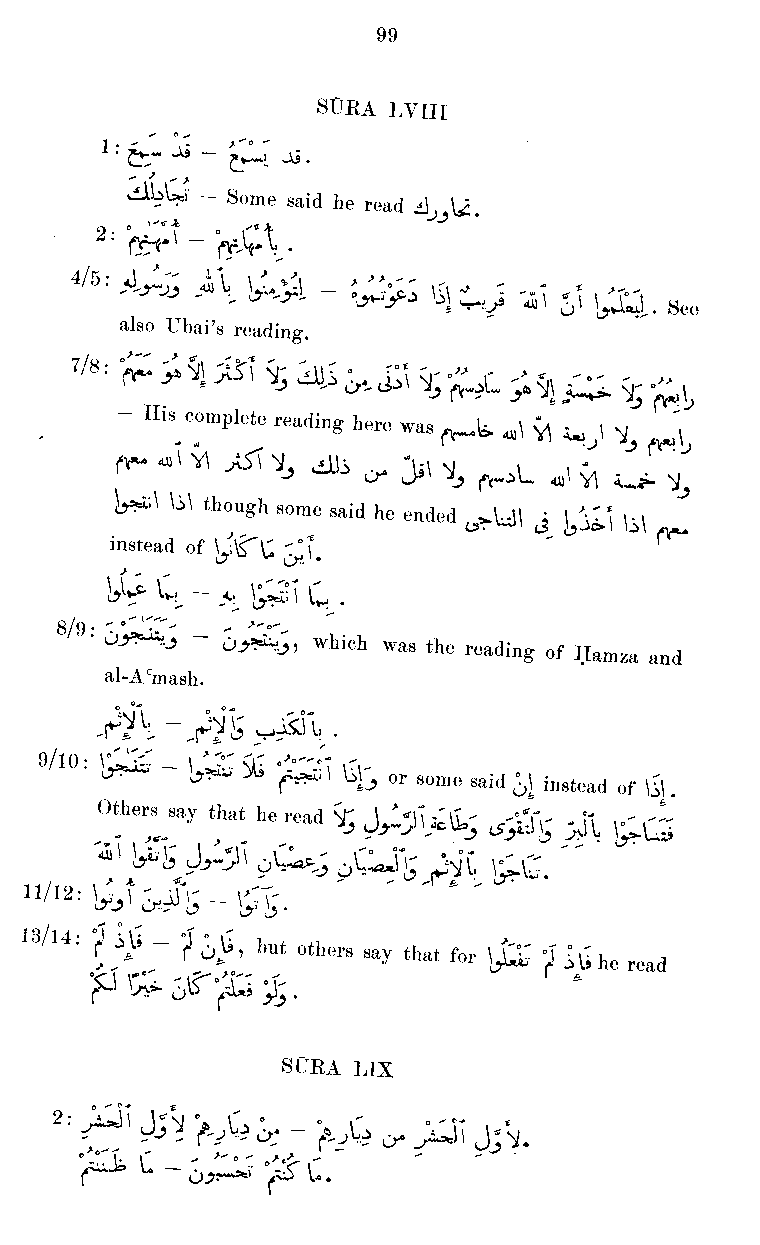 99
SŪRA LVIII
1: قَدْ سَمِعَ — قد يَسْمَعُ.
تُجَادِلُكَ -- Some said he read تحاورك.
2: أُمَّهَٰتِهِمْ — بِأُمَّهَاتِهِمْ.
4/5: لِتُؤْمِنُوا بِٱللهِ وَرَسُولِهِ — لِيَعْلَمُوا أَنَّ ٱللهَ قَرِيبٌ إِذَا دَعَوْتُمُوهُ. See
also Ubai's reading.
7/8: رابِعُهُمْ وَلَا خَمْسَةٍ إِلَّا هُوَ سَادِسُهُمْ وَلَا أَدْنَى مِن ذٰلِكَ وَلَا أَكْثَرَ إِلَّا هُوَ مَعَهُمْ
— His complete reading here was رابعهم ولا اربعة الّا الله خامسهم
ولا خمسة الّا الله سادسهم ولا اقلّ من ذلك ولا اكثر الّا ٱلله معهم
اذا انتجوا though some said he ended معهم اذا أَخَذُوا فِى التناجى
instead of أَيْنَ مَا كَانُوا.
بِمَا عَمِلُوا -- بِمَا ٱنْتَجَوْا بِهِ.
8/9: وَيَتَنَٰجَوْنَ — وَيَنْتَجُونَ, which was the reading of Ḥamza and
al-Aʿmash.
بِٱلْإِثْمِ — بِٱلْكَذِبِ وَٱلْإِثْمِ.
9/10: تَتَنَٰجَوْا — وَإِذَا ٱنْتَجَيْتُمْ فَلَا تَنْتَجُوا or some said إِنْ instead of إِذَا.
Others say that he read فَتَنَاجَوْا بِٱلْبِرِّ وَٱلتَّقْوَى وَطَاعَةِ ٱلرَّسُولِ وَلَا
تَنَاجَوْا بِٱلْإِثْمِ وَٱلْعِصْيَانِ وَعِصْيَانِ ٱلرَّسُولِ وَٱتَّقُوا ٱللهَ.
11/12: وَٱلَّذِينَ أُوتُوا --
13/14: فَإِذْ لَمْ — فَإِنْ لَمْ, but others say that for فَإِذْ لَمْ تَفْعَلُوا he read
وَلَوْ فَعَلْتُمْ كَانَ خَيْرًا لَكُمْ.
SŪRA LIX
2: مِنْ دِيَارِهِمْ لِأَوَّلِ ٱلْحَشْرِ — لِأَوَّلِ ٱلْحَشْرِ من دِيَارِهِمْ.
مَا ظَنَنْتُمْ — مَا كُنْتُمْ تَحْسَبُونَ.